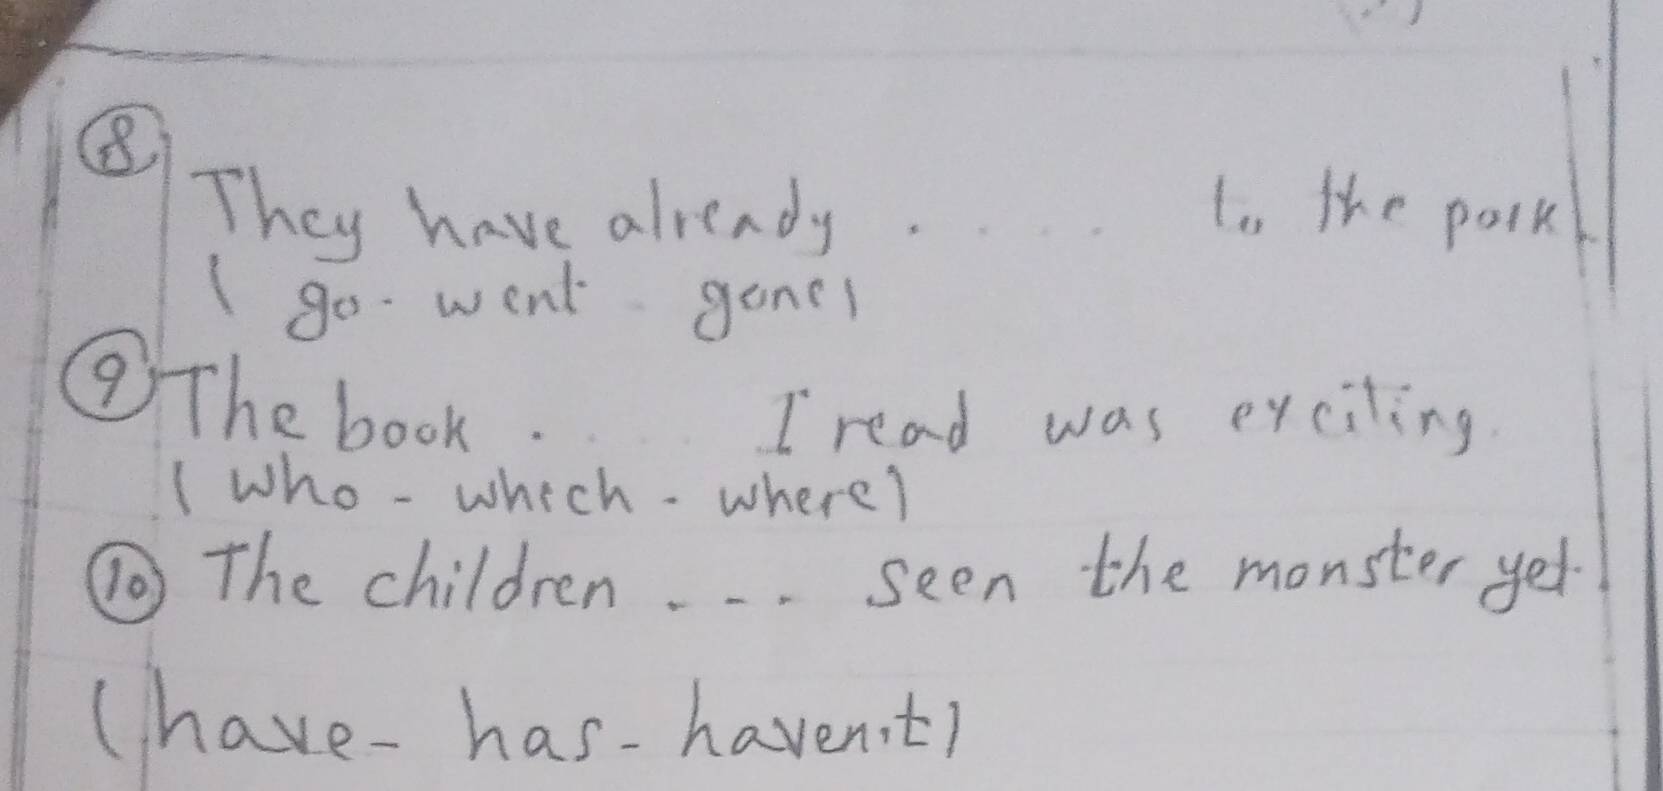 ⑧
They have already . . . . . to the park.
( go - went - gone)
⑨ The book . . . . I read was exciting.
( who - which - where)
⑩ The children . - - . seen the monster yet.
(have - has - haven't)